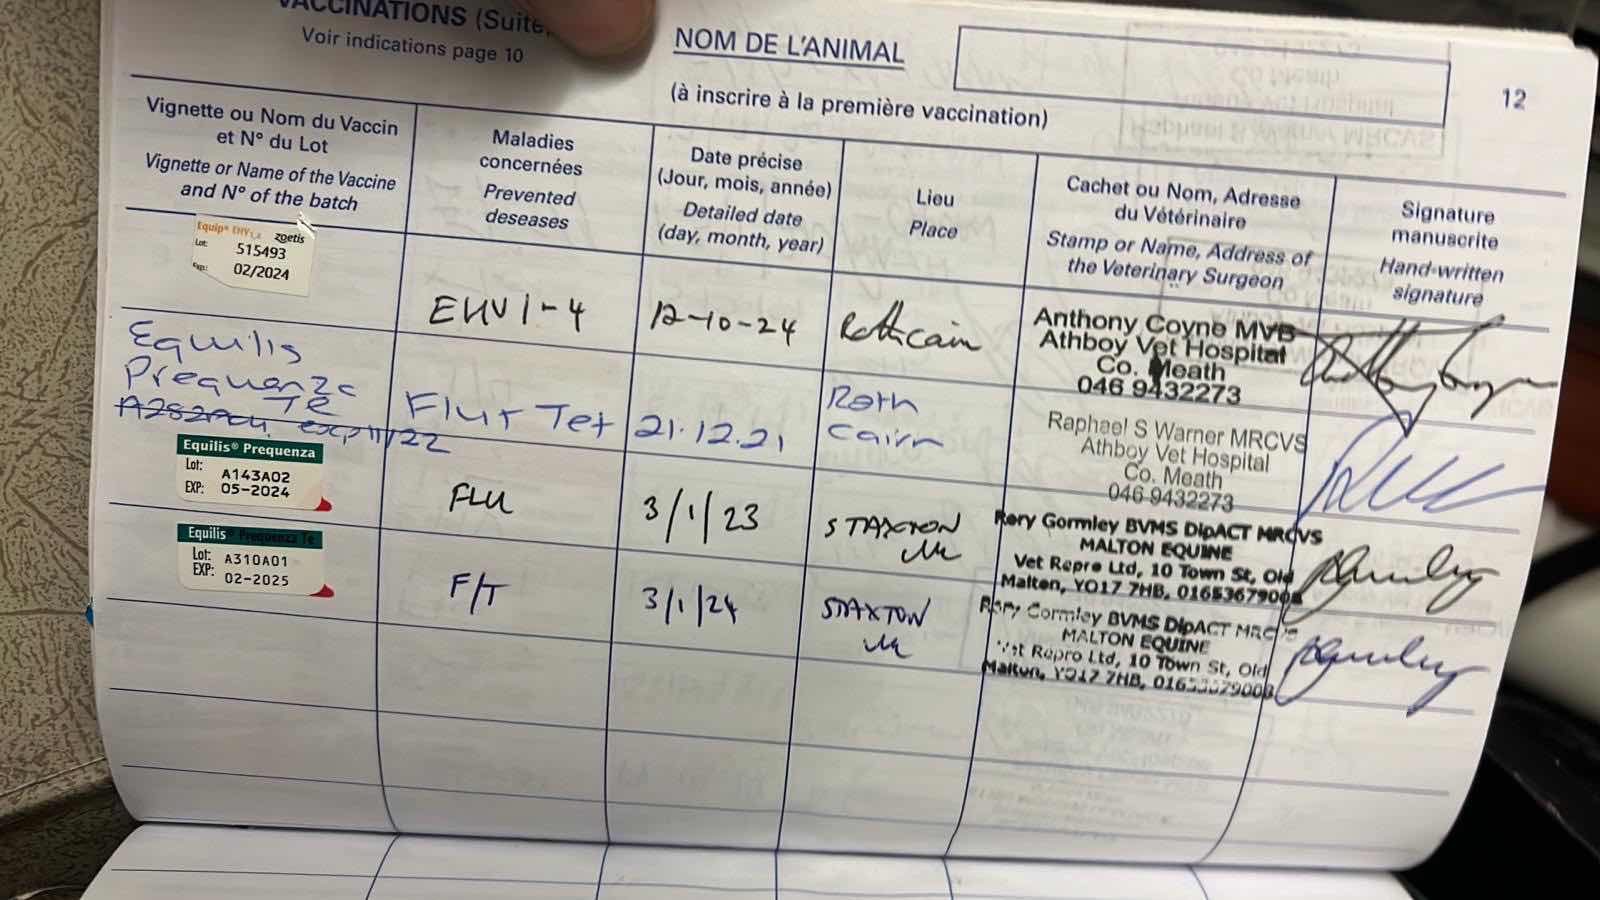 VACCINATIONS (Suite)
Voir indications page 10
NOM DE L'ANIMAL
(à inscrire à la première vaccination)
12
Vignette ou Nom du Vaccin
et N° du Lot
Vignette or Name of the Vaccine
and N° of the batch
Maladies
concernées
Prevented
deseases
Date précise
(Jour, mois, année)
Detailed date
(day, month, year)
Lieu
Place
Cachet ou Nom, Adresse
du Vétérinaire
Stamp or Name, Address of
the Veterinary Surgeon
Signature
manuscrite
Hand-written
signature
Equip® EHV1,4 zoetis
Lot: 515493
Exp.: 02/2024
EHV 1-4
12-10-24
Rathcairn
Anthony Coyne MVB
Athboy Vet Hospital
Co. Meath
046 9432273
Equilis
Prequenza
TE
exp 11/22
Flu + Tet
21.12.21
Rath
cairn
Raphael S Warner MRCVS
Athboy Vet Hospital
Co. Meath
046 9432273
Equilis® Prequenza
Lot: A143A02
EXP: 05-2024
FLU
3/1/23
STAXTON
Rory Gormley BVMS DipACT MRCVS
MALTON EQUINE
Vet Repro Ltd, 10 Town St, Old
Malton, YO17 7HB, 01653679008
Equilis Prequenza Te
Lot: A310A01
EXP: 02-2025
F/T
3/1/24
STAXTON
Rory Gormley BVMS DipACT MRCVS
MALTON EQUINE
Vet Repro Ltd, 10 Town St, Old
Malton, YO17 7HB, 01653679008